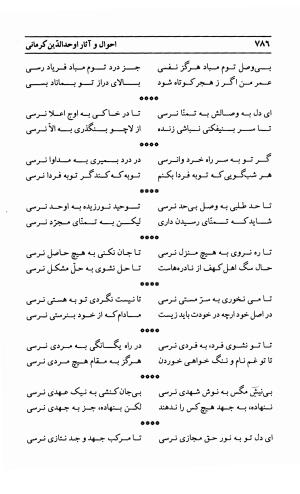 ۷۸۶ احوال و آثار اوحدالدّین کرمانی
بی‌وصل توم مباد هرگز نفسی جز درد توم مباد فریاد رسی
عمر من اگر ز هجر کوتاه شود بالای دراز تو بماناد بسی
****
ای دل به وصالش به تمنّا نرسی تا در خاکی به اوج اعلا نرسی
تا سر بنیفکنی نباشی زنده از لاچو بنگذری به الّا نرسی
****
گر تو به سر راه خرد وانرسی در درد بمیری به مداوا نرسی
هر شبگویی که توبه فردا بکنم توبه‌که کندگر تو به فردا نرسی
****
تا حد طلبی به وصل بی‌حد نرسی توحید نورزیده به اوحد نرسی
شاید که تمنّای رسیدن داری لیکن به تمنّای مجرّد نرسی
****
تا ره نروی به هیچ منزل نرسی تا جان نکنی به هیچ حاصل نرسی
حال سگ اهل کهف از نادره‌هاست تا حل نشوی به حلّ مشکل نرسی
****
تا می نخوری به سرّ مستی نرسی تا نیست نگردی تو به هستی نرسی
در اصل خود ارچه در خودت باید زیست مادام که از خود بنرستی نرسی
****
تا تو نشوی فرد، به فردی نرسی در راه یگانگی به مردی نرسی
تا تو غم نام و ننگ خواهی خوردن هرگز به مقام هیچ مردی نرسی
****
بی‌نیش مگس به نوش شهدی نرسی بی‌جان کنشی به نیک عهدی نرسی
ننهاده، به جهد هیچ کس را ندهند لکن بنهاده، جز به جهدی نرسی
****
ای دل تو به نور حق مجازی نرسی تا مرکب جهد و جد نتازی نرسی